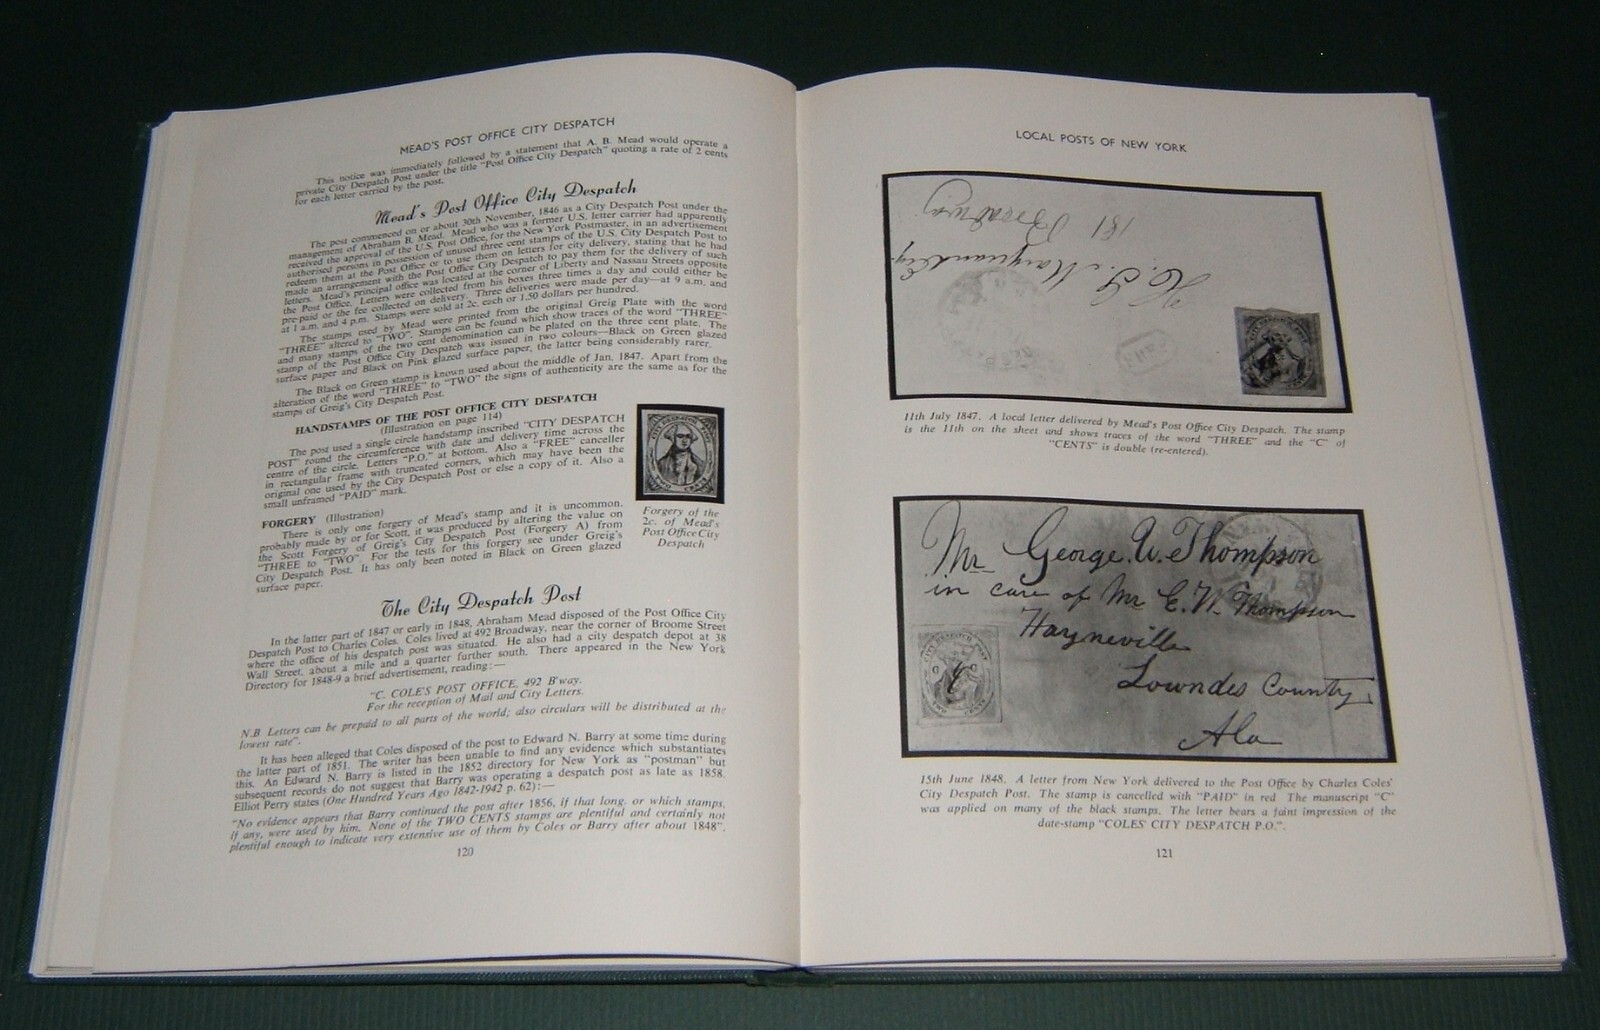 MEAD'S POST OFFICE CITY DESPATCH
This notice was immediately followed by a statement that A. B. Mead would operate a
private City Despatch Post under the title "Post Office City Despatch" quoting a rate of 2 cents
for each letter carried by the post.
Mead's Post Office City Despatch
The post commenced on or about 30th November, 1846 as a City Despatch Post under the
management of Abraham B. Mead. Mead who was a former U.S. letter carrier had apparently
received the approval of the U.S. Post Office, for the New York Postmaster, in an advertisement
authorised persons in possession of unused three cent stamps of the U.S. City Despatch Post to
redeem them at the Post Office or to use them on letters for city delivery, stating that he had
made an arrangement with the Post Office City Despatch to pay them for the delivery of such
letters. Mead's principal office was located at the corner of Liberty and Nassau Streets opposite
the Post Office. Letters were collected from his boxes three times a day and could either be
pre-paid or the fee collected on delivery. Three deliveries were made per day—at 9 a.m. and
at 1 a.m. and 4 p.m. Stamps were sold at 2c. each or 1.50 dollars per hundred.
The stamps used by Mead were printed from the original Greig Plate with the word
"THREE" altered to "TWO". Stamps can be found which show traces of the word "THREE"
and many stamps of the two cent denomination can be plated on the three cent plate. The
stamp of the Post Office City Despatch was issued in two colours—Black on Green glazed
surface paper and Black on Pink glazed surface paper, the latter being considerably rarer.
The Black on Green stamp is known used about the middle of Jan. 1847. Apart from the
alteration of the word "THREE" to "TWO" the signs of authenticity are the same as for the
stamps of Greig's City Despatch Post.
HANDSTAMPS OF THE POST OFFICE CITY DESPATCH
(Illustration on page 114)
The post used a single circle handstamp inscribed "CITY DESPATCH
POST" round the circumference with date and delivery time across the
centre of the circle. Letters "P.O." at bottom. Also a "FREE" canceller
in rectangular frame with truncated corners, which may have been the
original one used by the City Despatch Post or else a copy of it. Also a
small unframed "PAID" mark.
FORGERY (Illustration)
There is only one forgery of Mead's stamp and it is uncommon.
probably made by or for Scott, it was produced by altering the value on
the Scott Forgery of Greig's City Despatch Post (Forgery A) from
"THREE to "TWO". For the tests for this forgery see under Greig's
City Despatch Post. It has only been noted in Black on Green glazed
surface paper.
Forgery of the
2c. of Mead's
Post Office City
Despatch
The City Despatch Post
In the latter part of 1847 or early in 1848, Abraham Mead disposed of the Post Office City
Despatch Post to Charles Coles. Coles lived at 492 Broadway, near the corner of Broome Street
where the office of his despatch post was situated. He also had a city despatch depot at 38
Wall Street, about a mile and a quarter further south. There appeared in the New York
Directory for 1848-9 a brief advertisement, reading:—
"C. COLE'S POST OFFICE, 492 B'way.
For the reception of Mail and City Letters.
N.B Letters can be prepaid to all parts of the world; also circulars will be distributed at the
lowest rate".
It has been alleged that Coles disposed of the post to Edward N. Barry at some time during
the latter part of 1851. The writer has been unable to find any evidence which substantiates
this. An Edward N. Barry is listed in the 1852 directory for New York as "postman" but
subsequent records do not suggest that Barry was operating a despatch post as late as 1858.
Elliot Perry states (One Hundred Years Ago 1842-1942 p. 62):—
"No evidence appears that Barry continued the post after 1856, if that long, or which stamps,
if any, were used by him. None of the TWO CENTS stamps are plentiful and certainly not
plentiful enough to indicate very extensive use of them by Coles or Barry after about 1848".
120
LOCAL POSTS OF NEW YORK
H. G. Marquand Esq.
181 Broadway
11th July 1847. A local letter delivered by Mead's Post Office City Despatch. The stamp
is the 11th on the sheet and shows traces of the word "THREE" and the "C" of
"CENTS" is double (re-entered).
Mr George W. Thompson
in care of Mr E. W. Thompson
Hayneville
Lowndes County
Ala
15th June 1848. A letter from New York delivered to the Post Office by Charles Coles'
City Despatch Post. The stamp is cancelled with "PAID" in red. The manuscript "C"
was applied on many of the black stamps. The letter bears a faint impression of the
date-stamp "COLES' CITY DESPATCH P.O.".
121